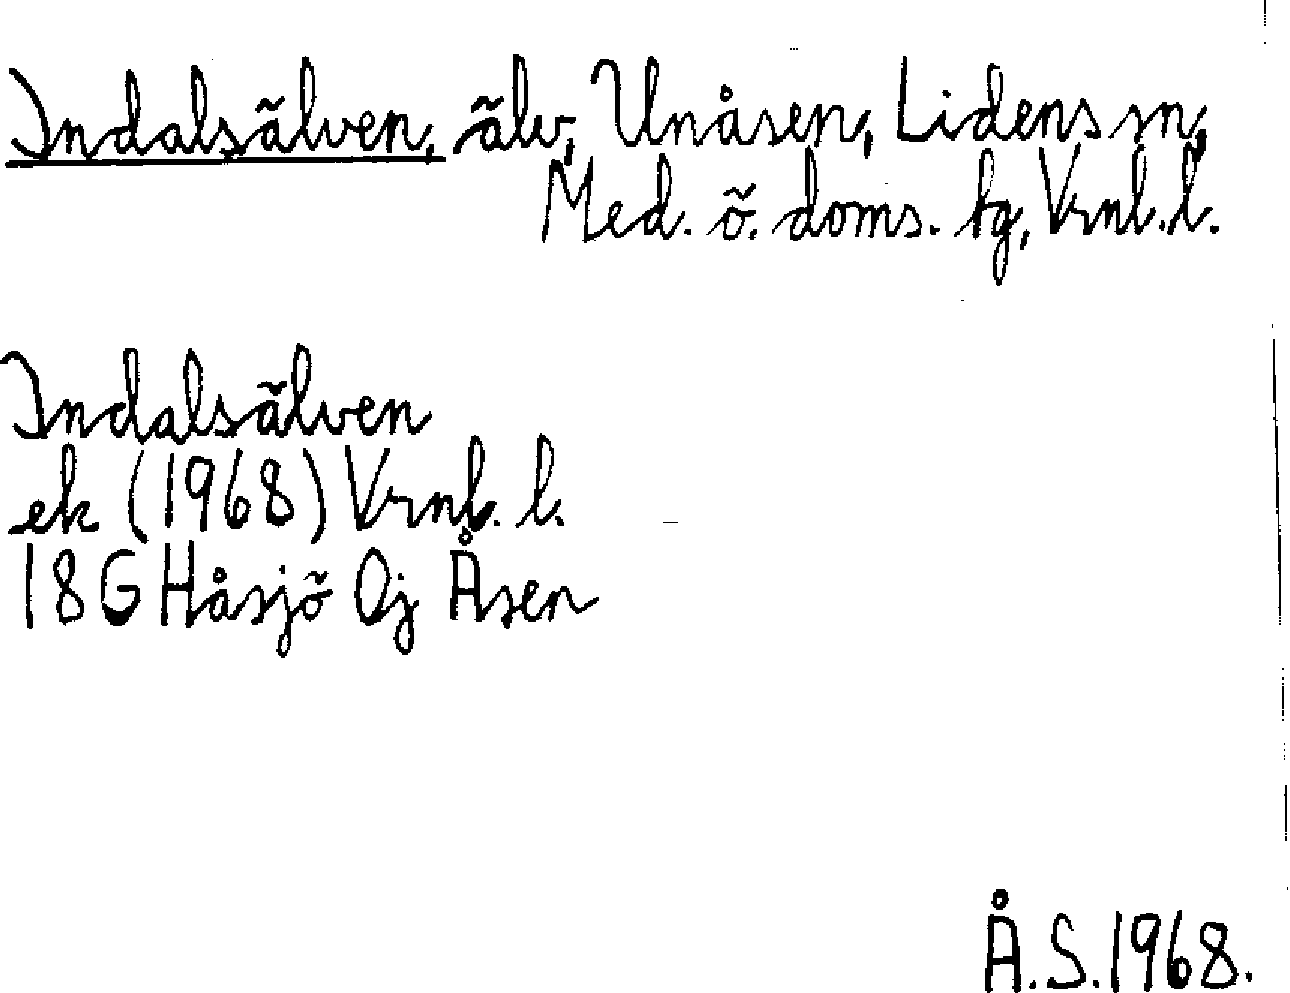 Indalsälven, älv, Unåsen, Lidens sn,
Med. ö. doms. tg, Vrnl. l.
Indalsälven
ek (1968) Vrnl. l.
18G Håsjö Oj Åsen
Å.S. 1968.